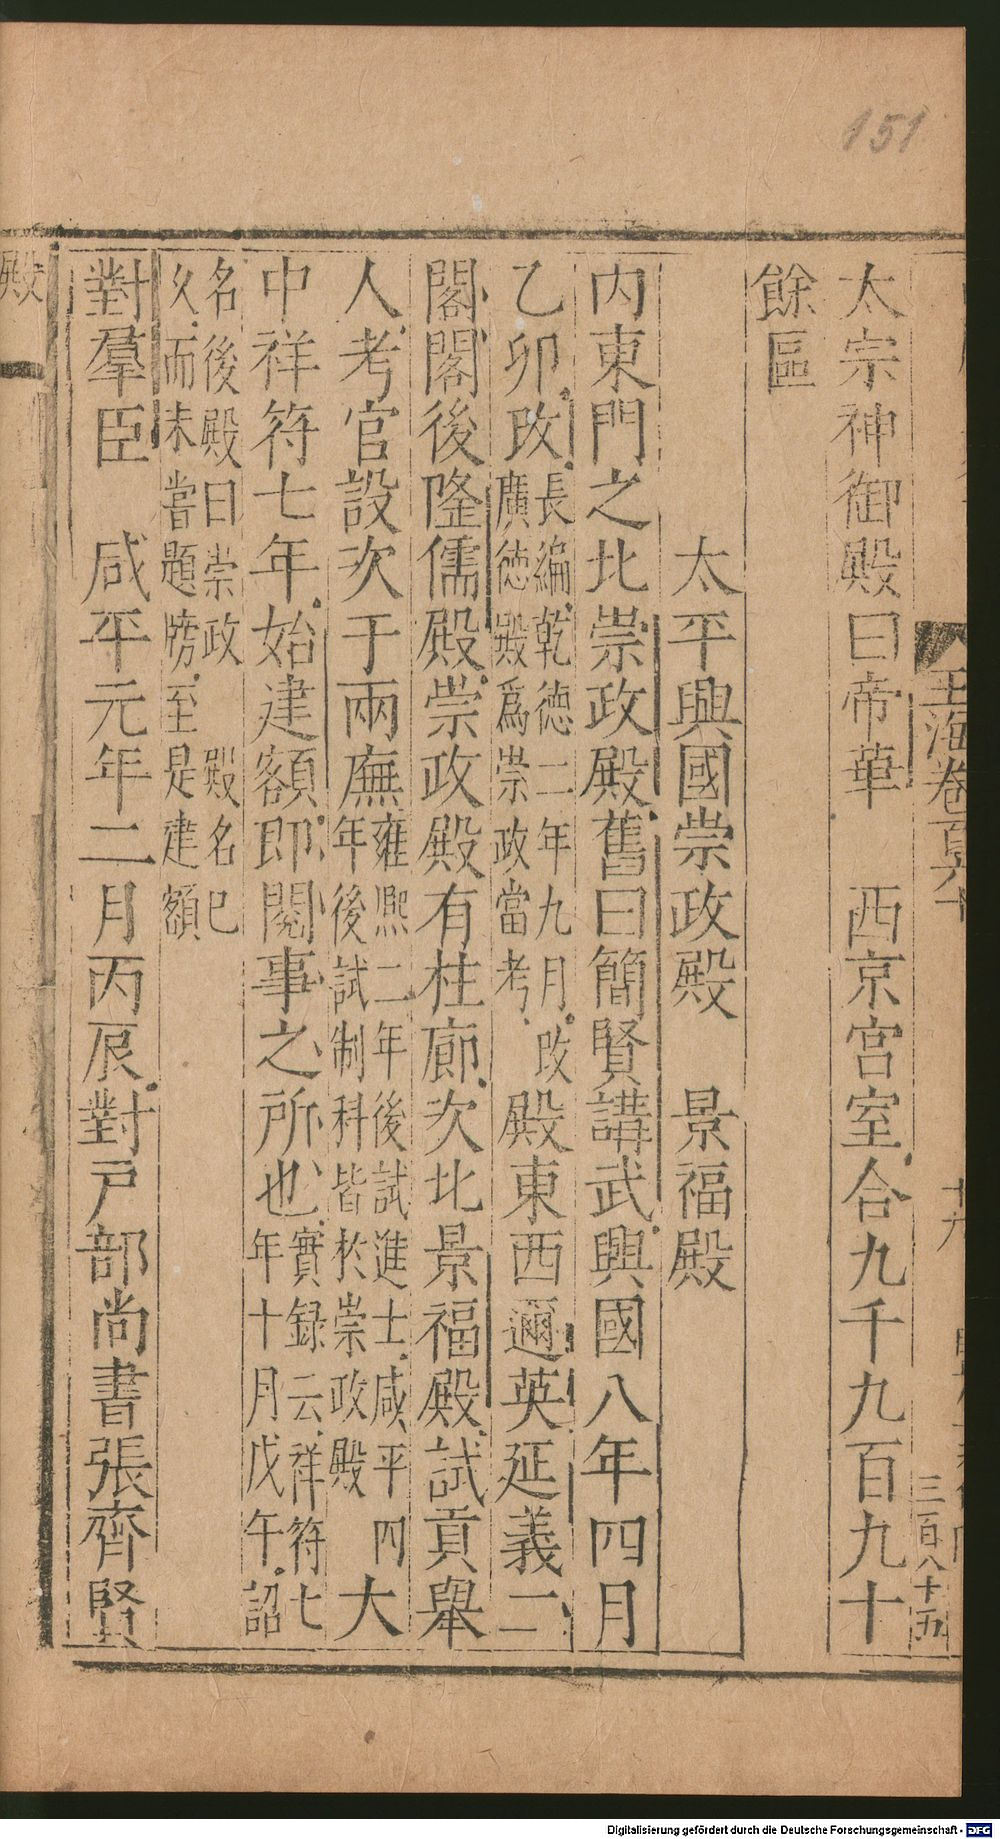 151
玉海卷百六十
三百八十五
太宗神御殿曰帝華　西京宮室合九千九百九十
餘區
太平興國崇政殿　景福殿
内東門之北崇政殿舊曰簡賢講武興國八年四月
乙卯改
長編乾德二年九月改
廣德殿爲崇政當考
殿東西邇英延義二
閣閣後隆儒殿崇政殿有柱廊次北景福殿試貢舉
人考官設次于兩廡
雍熈二年後試進士咸平四
年後試制科皆於崇政殿
大
中祥符七年始建額即閱事之所也
實録云祥符七
年十月戊午詔
名後殿曰崇政　殿名已
久而未嘗題牓至是建額
對羣臣　咸平元年二月丙辰對戸部尚書張齊賢
殿
Digitalisierung gefördert durch die Deutsche Forschungsgemeinschaft - DFG